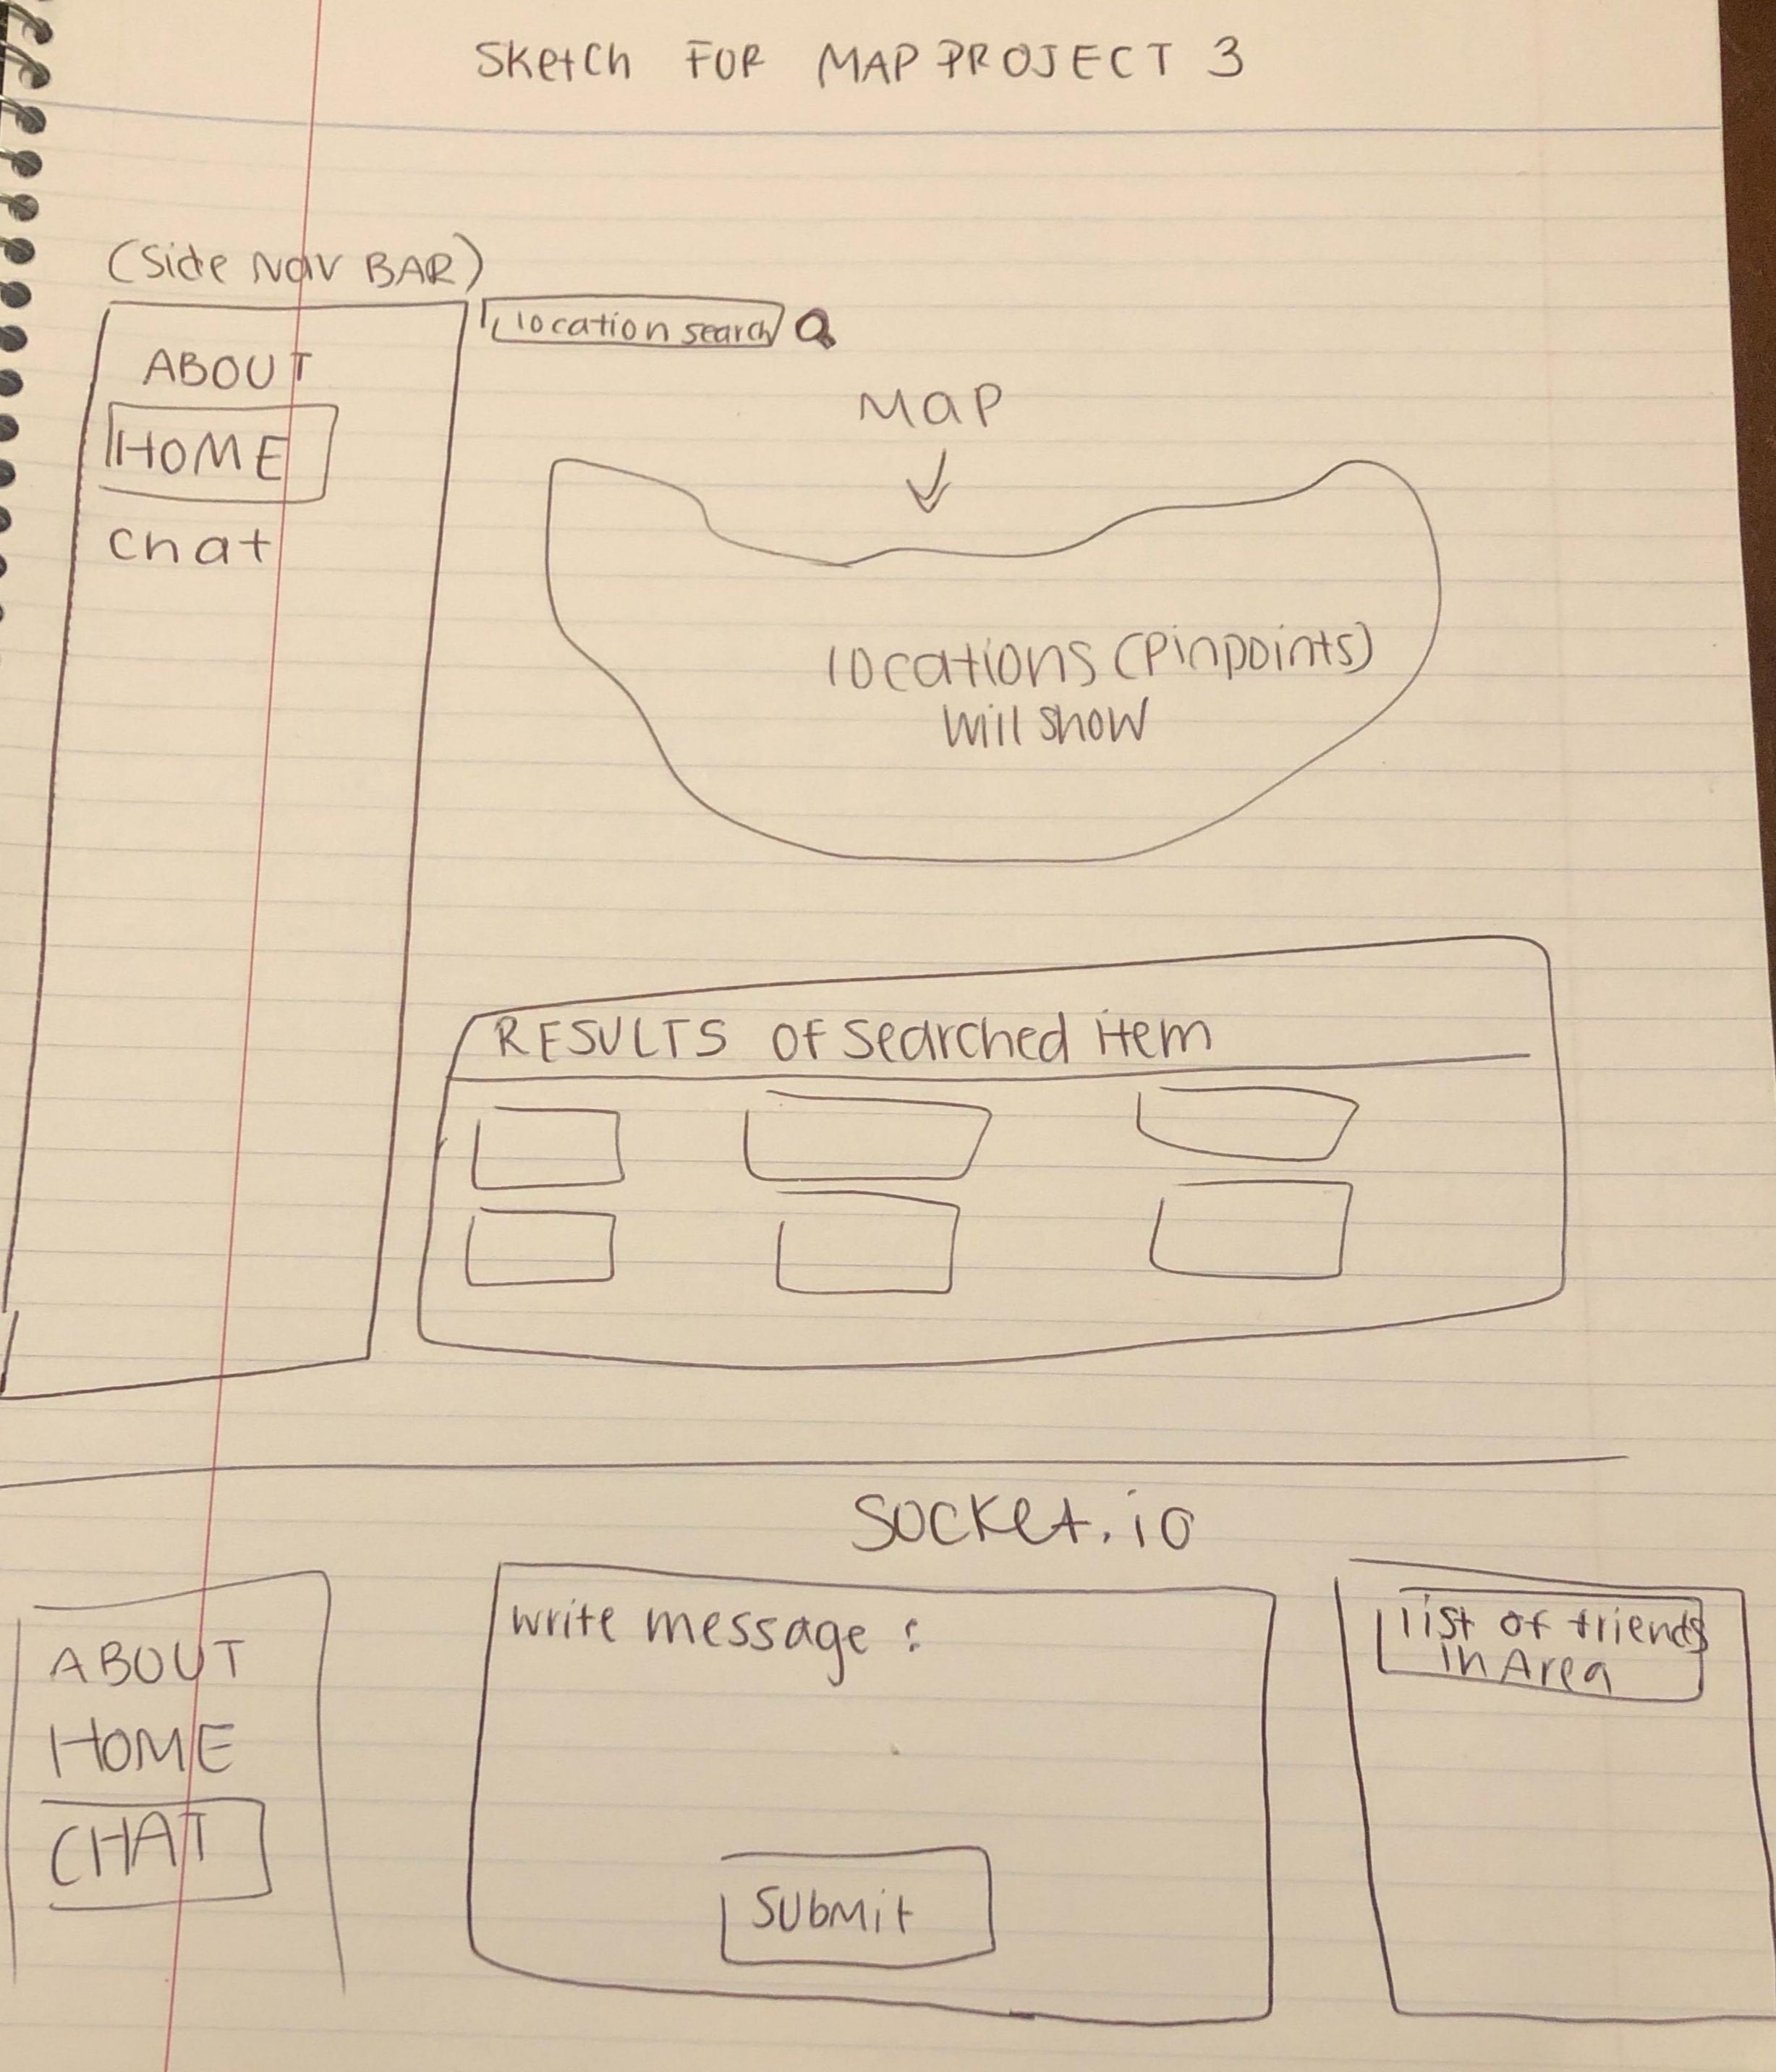 Sketch FOR MAP PROJECT 3
(Side Nav BAR)
location search
ABOUT
HOME
Chat
MAP
locations (Pinpoints)
will show
RESULTS of Searched item
Socket.io
ABOUT
HOME
CHAT
write message :
Submit
list of friends
in Area